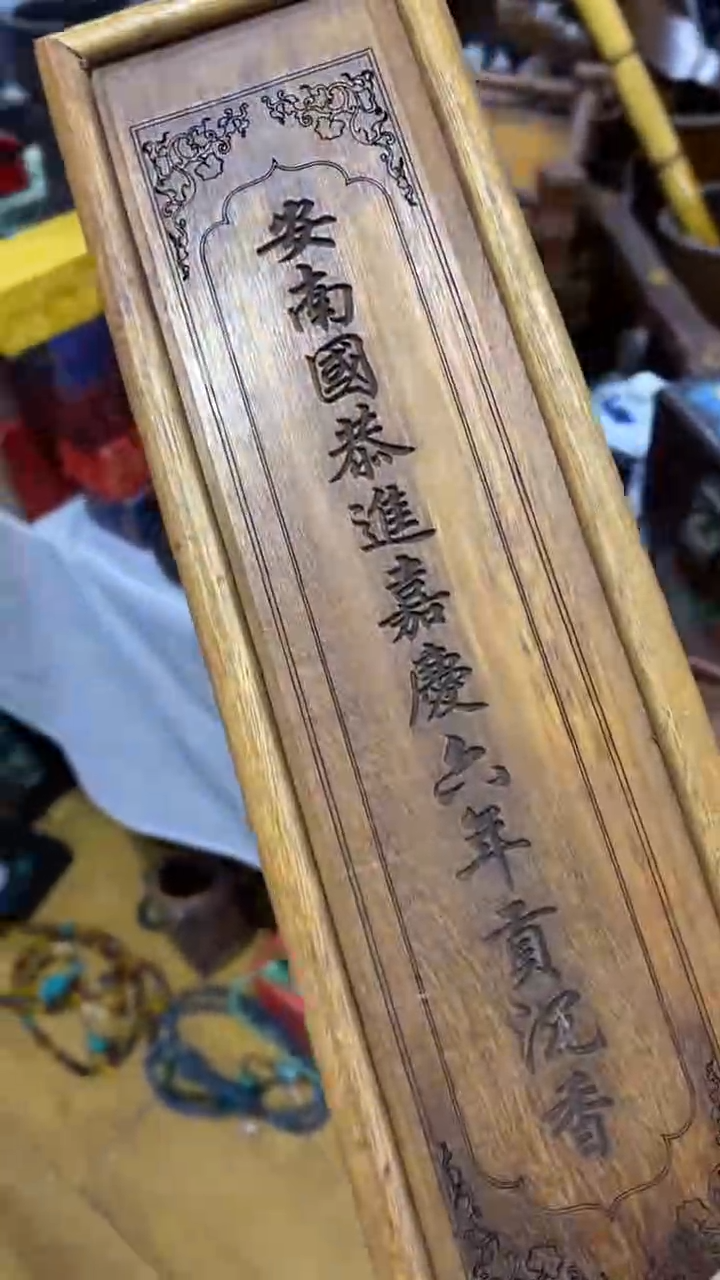 安南國恭進嘉慶六年貢沉香